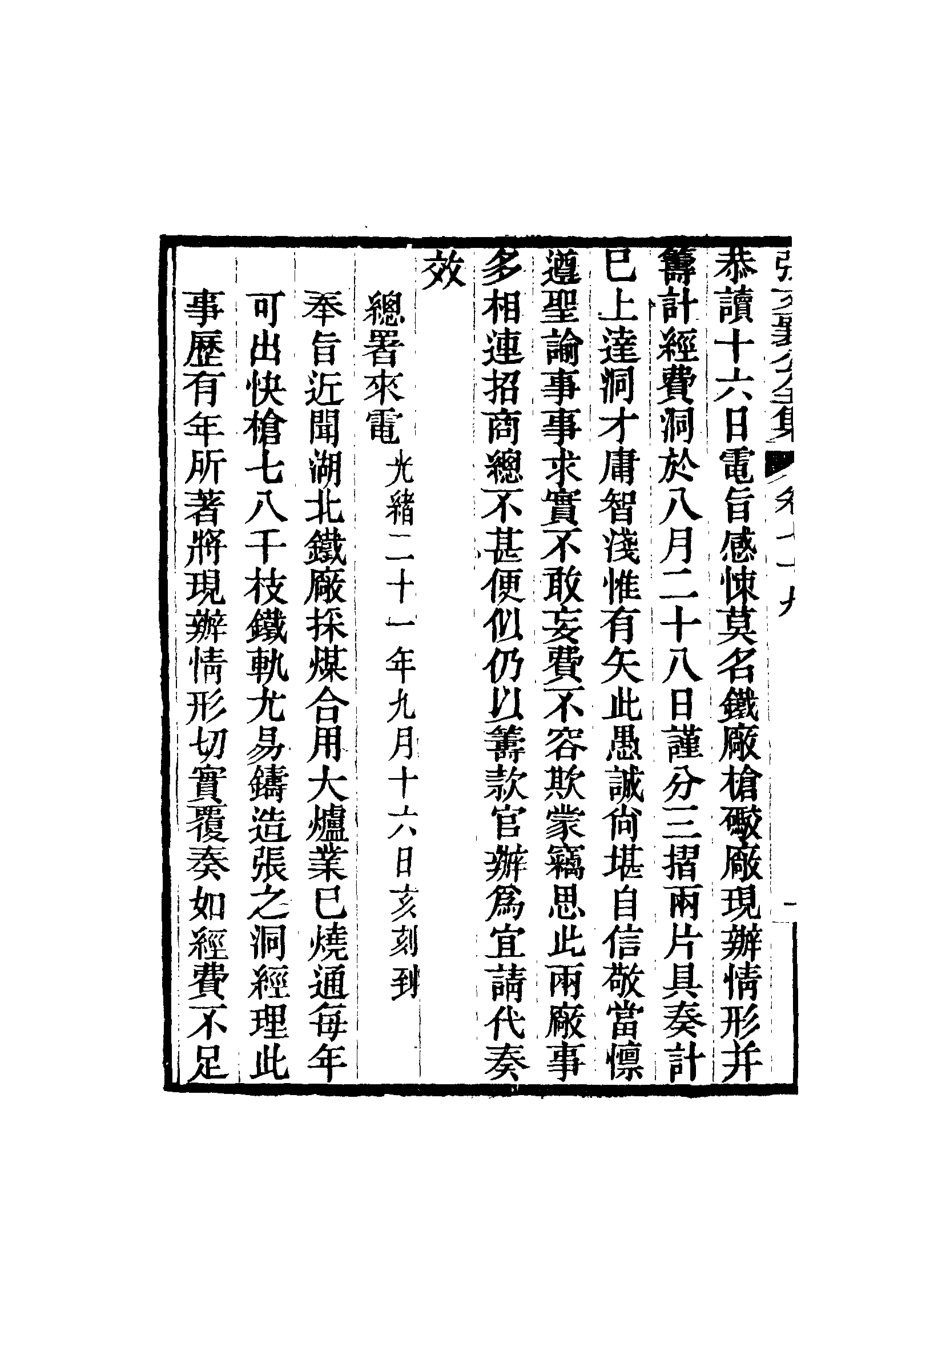 張文襄公全集 卷七十九 一
恭讀十六日電旨感悚莫名鐵廠槍礮廠現辦情形并
籌計經費洞於八月二十八日謹分三摺兩片具奏計
已上達洞才庸智淺惟有矢此愚誠尙堪自信敬當懍
遵聖諭事事求實不敢妄費不容欺蒙竊思此兩廠事
多相連招商總不甚便似仍以籌款官辦爲宜請代奏
效
總署來電 光緒二十一年九月十六日亥刻到
奉旨近聞湖北鐵廠採煤合用大爐業已燒通每年
可出快槍七八千枝鐵軌尤易鑄造張之洞經理此
事歷有年所著將現辦情形切實覆奏如經費不足